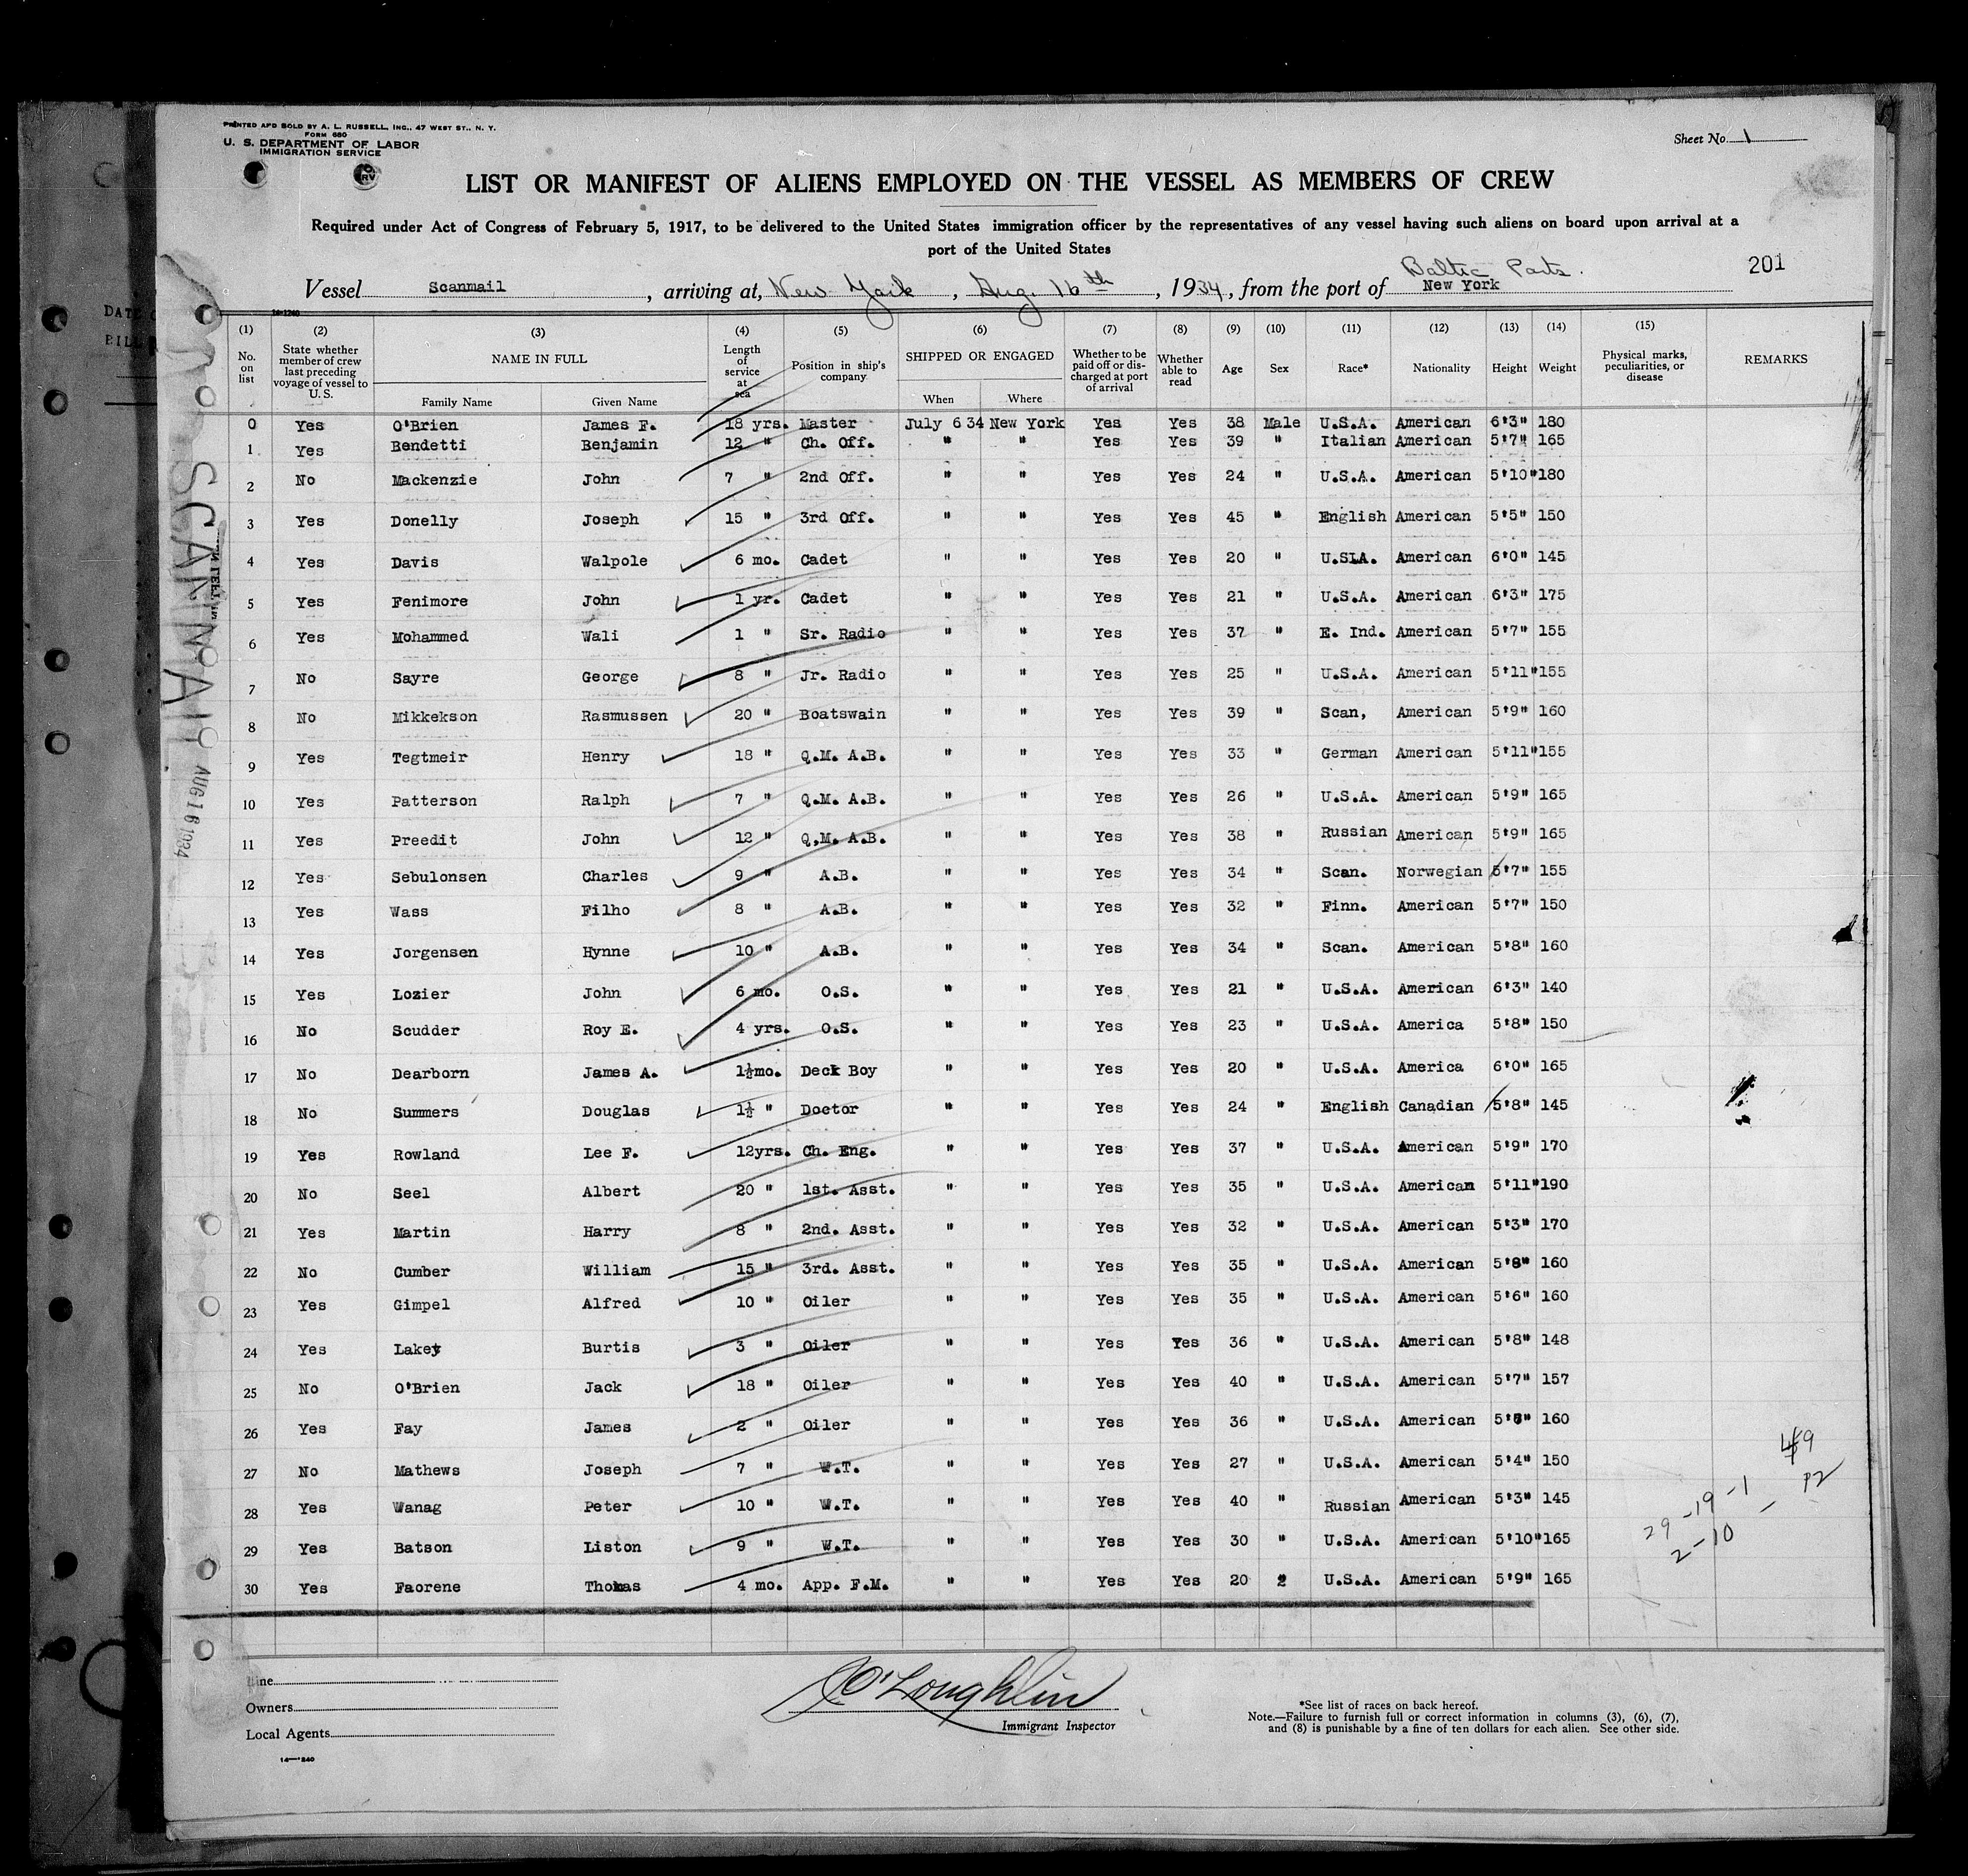 PRINTED AND SOLD BY A. L. RUSSELL, INC., 47 WEST ST., N. Y.
FORM 680
U. S. DEPARTMENT OF LABOR
IMMIGRATION SERVICE
Sheet No. 1
LIST OR MANIFEST OF ALIENS EMPLOYED ON THE VESSEL AS MEMBERS OF CREW
Required under Act of Congress of February 5, 1917, to be delivered to the United States immigration officer by the representatives of any vessel having such aliens on board upon arrival at a
port of the United States
Baltic Ports.
201
Vessel Scanmail, arriving at, New York, Aug. 16th, 1934, from the port of New York
14-1240
(1) (2) (3) (4) (5) (6) (7) (8) (9) (10) (11) (12) (13) (14) (15)
No. on list | State whether member of crew last preceding voyage of vessel to U. S. | NAME IN FULL | Length of service at sea | Position in ship's company | SHIPPED OR ENGAGED | Whether to be paid off or discharged at port of arrival | Whether able to read | Age | Sex | Race* | Nationality | Height | Weight | Physical marks, peculiarities, or disease | REMARKS
Family Name | Given Name | When | Where
0 Yes O'Brien James F. 18 yrs. Master July 6 34 New York Yes Yes 38 Male U.S.A. American 6'3" 180
1 Yes Bendetti Benjamin 12 " Ch. Off. " " Yes Yes 39 " Italian American 5'7" 165
2 No Mackenzie John 7 " 2nd Off. " " Yes Yes 24 " U.S.A. American 5'10" 180
3 Yes Donelly Joseph 15 " 3rd Off. " " Yes Yes 45 " English American 5'5" 150
4 Yes Davis Walpole 6 mo. Cadet " " Yes Yes 20 " U.SIA. American 6'0" 145
5 Yes Fenimore John 1 yr. Cadet " " Yes Yes 21 " U.S.A. American 6'3" 175
6 Yes Mohammed Wali 1 " Sr. Radio " " Yes Yes 37 " E. Ind. American 5'7" 155
7 No Sayre George 8 " Jr. Radio " " Yes Yes 25 " U.S.A. American 5'11" 155
8 No Mikkekson Rasmussen 20 " Boatswain " " Yes Yes 39 " Scan, American 5'9" 160
9 Yes Tegtmeir Henry 18 " Q.M. A.B. " " Yes Yes 33 " German American 5'11" 155
10 Yes Patterson Ralph 7 " Q.M. A.B. " " Yes Yes 26 " U.S.A. American 5'9" 165
11 Yes Preedit John 12 " Q,M. A.B. " " Yes Yes 38 " Russian American 5'9" 165
12 Yes Sebulonsen Charles 9 " A.B. " " Yes Yes 34 " Scan. Norwegian 5'7" 155
13 Yes Wass Filho 8 " A.B. " " Yes Yes 32 " Finn. American 5'7" 150
14 Yes Jorgensen Hynne 10 " A.B. " " Yes Yes 34 " Scan. American 5'8" 160
15 Yes Lozier John 6 mo. O.S. " " Yes Yes 21 " U.S.A. American 6'3" 140
16 No Scudder Roy E. 4 yrs. O.S. " " Yes Yes 23 " U.S.A. America 5'8" 150
17 No Dearborn James A. 1½mo. Deck Boy " " Yes Yes 20 " U.S.A. America 6'0" 165
18 No Summers Douglas 1½ " Doctor " " Yes Yes 24 " English Canadian 5'8" 145
19 Yes Rowland Lee F. 12yrs. Ch. Eng. " " Yes Yes 37 " U.S.A. American 5'9" 170
20 No Seel Albert 20 " 1st. Asst. " " Yes Yes 35 " U.S.A. American 5'11" 190
21 Yes Martin Harry 8 " 2nd. Asst. " " Yes Yes 32 " U.S.A. American 5'3" 170
22 No Cumber William 15 " 3rd. Asst. " " Yes Yes 35 " U.S.A. American 5'8" 160
23 Yes Gimpel Alfred 10 " Oiler " " Yes Yes 35 " U.S.A. American 5'6" 160
24 Yes Lakey Burtis 3 " Oiler " " Yes Yes 36 " U.S.A. American 5'8" 148
25 No O'Brien Jack 18 " Oiler " " Yes Yes 40 " U.S.A. American 5'7" 157
26 Yes Fay James 2 " Oiler " " Yes Yes 36 " U.S.A. American 160
27 No Mathews Joseph 7 " W.T. " " Yes Yes 27 " U.S.A. American 5'4" 150
28 Yes Wanag Peter 10 " W.T. " " Yes Yes 40 " Russian American 5'3" 145
29 Yes Batson Liston 9 " W.T. " " Yes Yes 30 " U.S.A. American 5'10" 165
30 Yes Faorene Thomas 4 mo. App. F.M. " " Yes Yes 20 2 U.S.A. American 5'9" 165
29-19-1
2-10
P2
SCANMAIL AUG 16 1934
Line
Owners
Local Agents
O'Loughlin
Immigrant Inspector
*See list of races on back hereof.
Note.—Failure to furnish full or correct information in columns (3), (6), (7),
and (8) is punishable by a fine of ten dollars for each alien. See other side.
14—1240